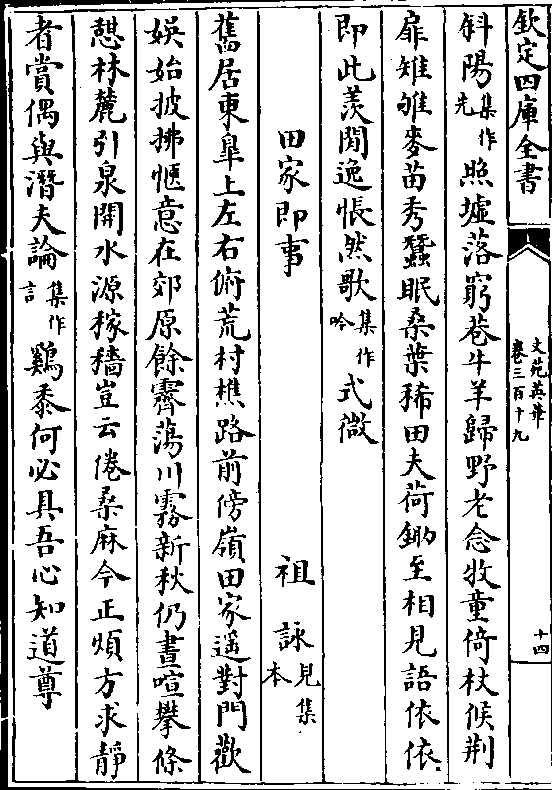 欽定四庫全書
文苑英華
卷三百十九
十四
斜陽集作先照墟落窮巷牛羊歸野老念牧童倚杖候荆
扉雉雊麥苗秀蠶眠桑葉稀田夫荷鋤至相見語依依
即此羨閒逸悵然歌集作吟式微
田家即事
祖詠見集本
舊居東臯上左右俯荒村樵路前傍嶺田家遥對門歡
娱始披拂愜意在郊原餘霽蕩川霧新秋仍晝喧攀條
憇林麓引泉開水源稼穡豈云倦桑麻今正煩方求靜
者賞偶與潛夫論集作言鷄黍何必具吾心知道尊